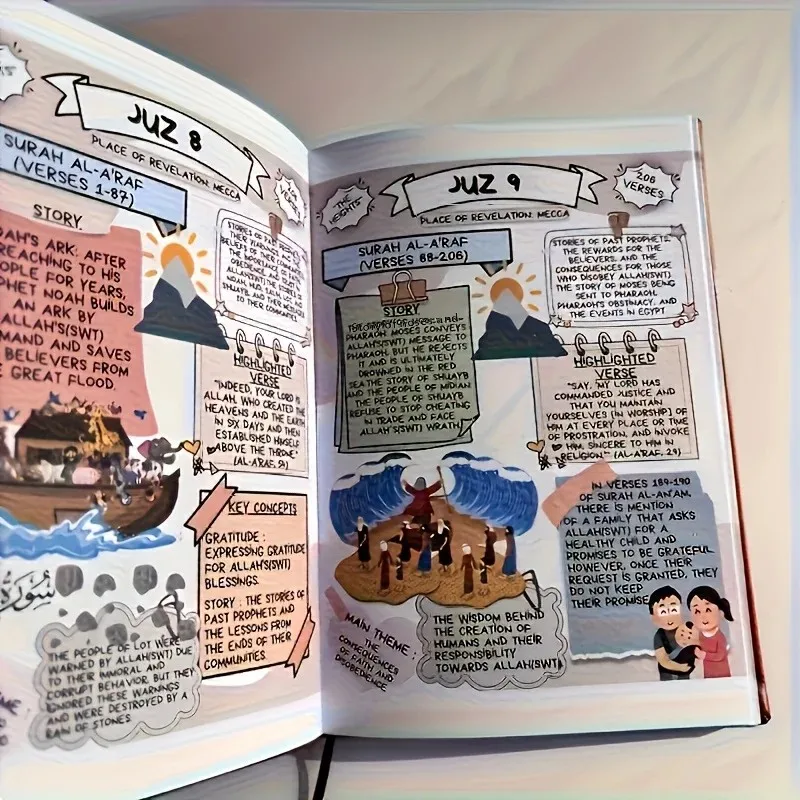 JUZ 8
PLACE OF REVELATION: MECCA
SURAH AL-A'RAF
(VERSES 1-87)
STORY
AH'S ARK: AFTER
REACHING TO HIS
OPLE FOR YEARS,
PHET NOAH BUILDS
AN ARK BY
ALLAH'S(SWT)
MAND AND SAVES
BELIEVERS FROM
E GREAT FLOOD.
سورة
THE PEOPLE OF LOT WERE
WARNED BY ALLAH(SWT) DUE
TO THEIR IMMORAL AND
CORRUPT BEHAVIOR, BUT THEY
IGNORED THESE WARNINGS
AND WERE DESTROYED BY A
RAIN OF STONES.
STORIES OF PAST PROPHETS,
OBEDIENCE, AND
TO THEIR COMMUNITIES
HIGHLIGHTED
VERSE
"INDEED, YOUR LORD IS
ALLAH, WHO CREATED THE
HEAVENS AND THE EARTH
IN SIX DAYS AND THEN
ESTABLISHED HIMSELF
ABOVE THE THRONE"
(AL-A'RAF, 54)
KEY CONCEPTS
GRATITUDE :
EXPRESSING GRATITUDE
FOR ALLAH'S(SWT)
BLESSINGS.
STORY : THE STORIES OF
PAST PROPHETS AND
THE LESSONS FROM
THE ENDS OF THEIR
COMMUNITIES.
THE
HEIGHTS
JUZ 9
206
VERSES
PLACE OF REVELATION: MECCA
SURAH AL-A'RAF
(VERSES 88-206)
STORY
PHARAOH: MOSES CONVEYS
ALLAH'S(SWT) MESSAGE TO
PHARAOH, BUT HE REJECTS
IT AND IS ULTIMATELY
DROWNED IN THE RED
SEA.THE STORY OF SHUAYB
AND THE PEOPLE OF MIDIAN
THE PEOPLE OF SHUAYB
REFUSE TO STOP CHEATING
IN TRADE AND FACE
ALLAH'S(SWT) WRATH.
MAIN THEME :
THE
CONSEQUENCES
OF FAITH AND
DISOBEDIENCE
THE WISDOM BEHIND
THE CREATION OF
HUMANS AND THEIR
RESPONSIBILITY
TOWARDS ALLAH(SWT)
STORIES OF PAST PROPHETS,
THE REWARDS FOR THE
BELIEVERS, AND THE
CONSEQUENCES FOR THOSE
WHO DISOBEY ALLAH(SWT)
THE STORY OF MOSES BEING
SENT TO PHARAOH,
PHARAOH'S OBSTINACY, AND
THE EVENTS IN EGYPT
HIGHLIGHTED
VERSE
"SAY, 'MY LORD HAS
COMMANDED JUSTICE AND
THAT YOU MAINTAIN
YOURSELVES (IN WORSHIP) OF
HIM AT EVERY PLACE OR TIME
OF PROSTRATION, AND INVOKE
HIM, SINCERE TO HIM IN
RELIGION.'" (AL-A'RAF, 29)
IN VERSES 189-190
OF SURAH AL-AN'AM,
THERE IS MENTION
OF A FAMILY THAT ASKS
ALLAH(SWT) FOR A
HEALTHY CHILD AND
PROMISES TO BE GRATEFUL.
HOWEVER, ONCE THEIR
REQUEST IS GRANTED, THEY
DO NOT KEEP
THEIR PROMISE